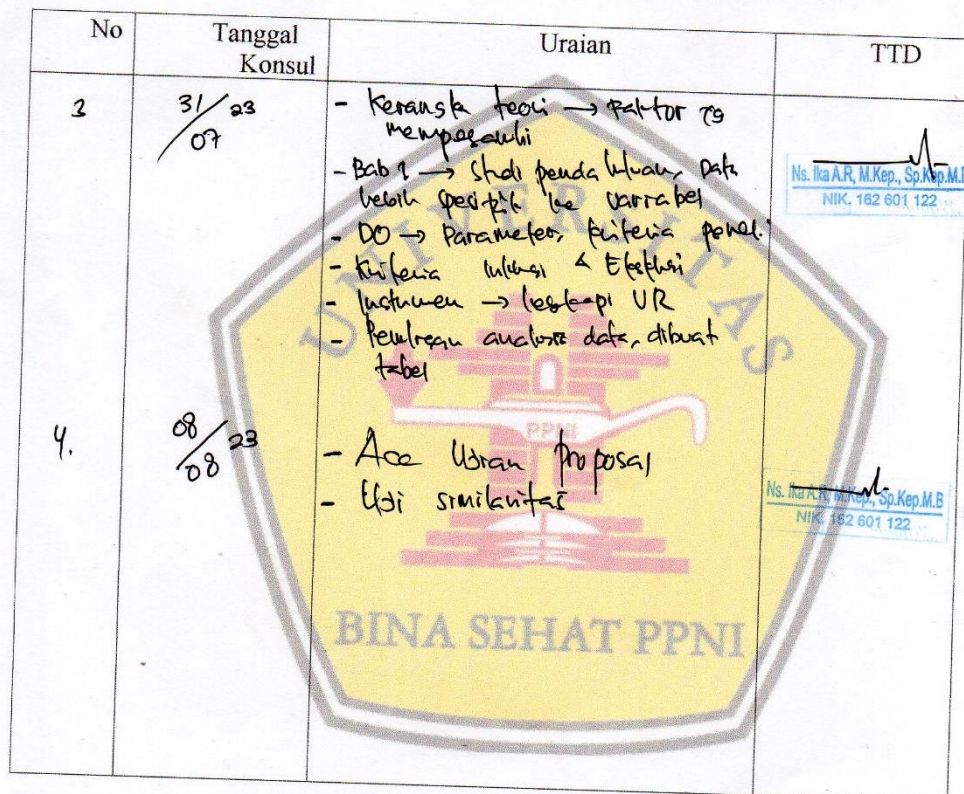 No Tanggal Konsul Uraian TTD
3 31/07 23 - Kerangka teori → Faktor yg
mempengaruhi
- Bab 1 → Studi pendahuluan, Data
lebih spesifik ke variabel
- DO → Parameter, kriteria penel.
- Kriteria inklusi & Eksklusi
- Instrumen → lengkapi
- analisa data, dibuat
tabel
Ns. Ika A.R, M.Kep., Sp.Kep.M.B
NIK. 162 601 122
4. 08/08 23 - Acc Ujian Proposal
- Uji similaritas
Ns. Ika A.R, M.Kep., Sp.Kep.M.B
NIK. 162 601 122
UNIVERSITAS
PPNI
BINA SEHAT PPNI